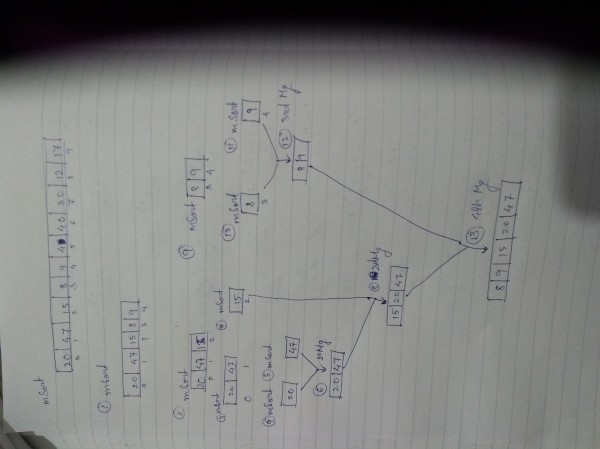 mSort
20 47 15 8 9 4 40 30 12 17
0 1 2 3 4 5 6 7 8 9
① mSort
20 47 15 8 9
0 1 2 3 4
② mSort
20 47 15
0 1 2
mSort
20 47
0 1
④ mSort
20
⑤ mSort
47
⑥
20 47
mSort
15
2
15 20 47
⑨ mSort
8 9
3 4
⑩ mSort
8
3
⑪ mSort
9
4
⑫ 3rd Mg
8 9
⑬ 4th Mg
8 9 15 20 47